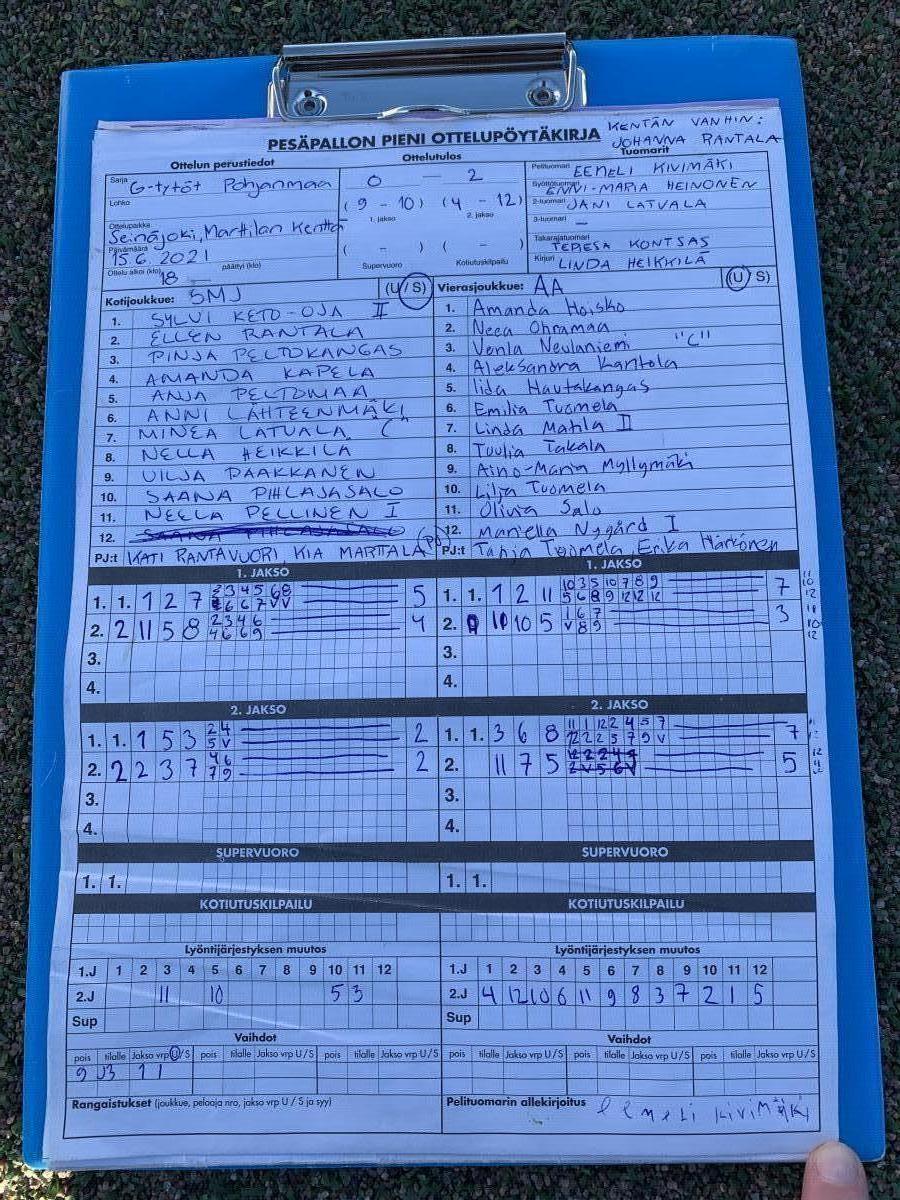 KENTÄN VANHIN:
JOHANNA RANTALA
PESÄPALLON PIENI OTTELUPÖYTÄKIRJA
Ottelun perustiedot
Sarja G-tytöt Pohjanmaa
Lohko
Ottelupaikka Seinäjoki, Marttilan Kenttä
Päivämäärä 15.6.2021
Ottelu alkoi (klo) 18 päättyi (klo)
Ottelutulos
0 — 2
(9 - 10) (4 - 12)
1. jakso 2. jakso
( - ) ( - )
Supervuoro Kotiutuskilpailu
Tuomarit
Pelituomari EEMELI KIVIMÄKI
Syöttötuomari ENNI-MARIA HEINONEN
2-tuomari JANI LATVALA
3-tuomari —
Takarajatuomari TERESA KONTSAS
Kirjuri LINDA HEIKKILÄ
Kotijoukkue: SMJ (U/S)
1. SYLVI KETO-OJA II
2. ELLEN RANTALA
3. PINJA PELTOKANGAS
4. AMANDA KAPELA
5. ANJA PELTOMAA
6. ANNI LÄHTEENMÄKI
7. MINEA LATVALA "C"
8. NELLA HEIKKILÄ
9. VILJA PAAKKANEN
10. SAANA PIHLAJASALO
11. NEELA PELLINEN I
12. SAANA PIHLAJASALO
PJ:t KATI RANTAVUORI KIA MARTTALA
Vierasjoukkue: AA (U/S)
1. Amanda Hoisko
2. Neea Ohramaa
3. Venla Neulaniemi "C"
4. Aleksandra Kantola
5. Iida Hautakangas
6. Emilia Tuomela
7. Linda Matila II
8. Tuulia Takala
9. Aino-Maria Myllymäki
10. Lilja Tuomela
11. Olivia Salo
12. Mariella Nygård I
PJ:t Tanja Tuomela, Erika Härkönen
1. JAKSO
1. 1. 1 2 7 5
2. 2 11 5 8 2 3 4 6 4
4 6 6 9
3.
4.
1. JAKSO
1. 1. 1 2 11 10 3 5 10 7 8 9 7
5 6 8 9 12 12 12
2. 10 5 1 6 7 3
V 8 9
3.
4.
11
10
12
11
10
12
2. JAKSO
1. 1. 1 5 3 2 4 2
5 V
2. 2 2 3 7 4 6 2
7 9
3.
4.
2. JAKSO
1. 1. 3 6 8 11 1 12 2 4 5 7 7
12 2 2 5 7 9 V
2. 11 7 5 5
3.
4.
SUPERVUORO
1. 1.
SUPERVUORO
1. 1.
KOTIUTUSKILPAILU
KOTIUTUSKILPAILU
Lyöntijärjestyksen muutos
1.J 1 2 3 4 5 6 7 8 9 10 11 12
2.J 11 10 5 3
Sup
Lyöntijärjestyksen muutos
1.J 1 2 3 4 5 6 7 8 9 10 11 12
2.J 4 12 10 6 11 9 8 3 7 2 1 5
Sup
Vaihdot
pois tilalle Jakso vrp U/S pois tilalle Jakso vrp U/S pois tilalle Jakso vrp U/S
9 U3 1 1
Vaihdot
pois tilalle Jakso vrp U/S pois tilalle Jakso vrp U/S pois tilalle Jakso vrp U/S
Rangaistukset (joukkue, pelaaja nro, jakso vrp U / S ja syy)
Pelituomarin allekirjoitus eemeli kivimäki